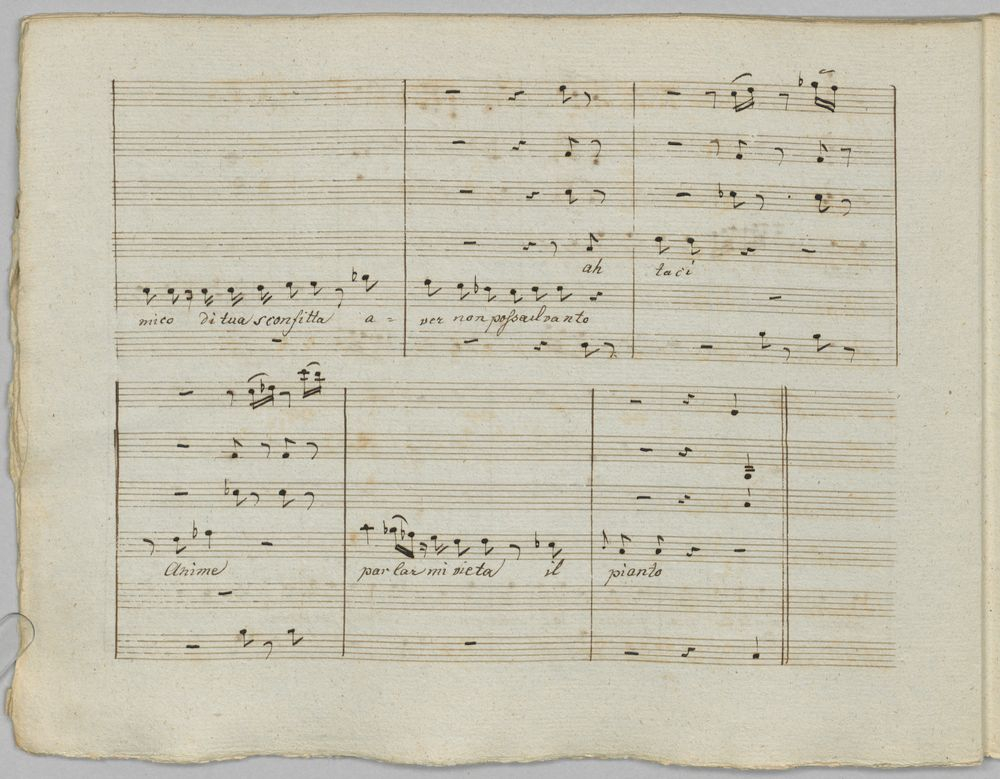 ah taci
mico di tua sconfitta a= ver non possa il vanto
Ahime parlar mi vieta il pianto